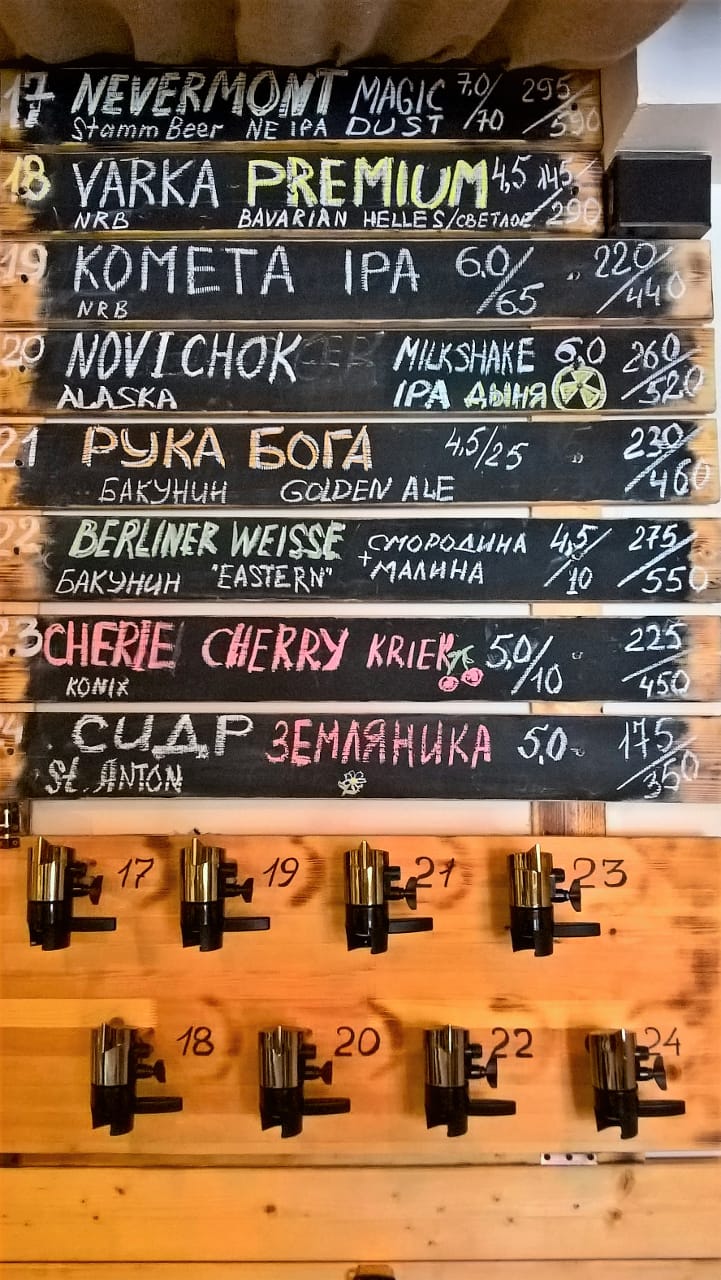 17 NEVERMONT MAGIC 7,0/70 295/590
Stamm Beer NE IPA DUST
18 VARKA PREMIUM 4,5 145/290
NRB BAVARIAN HELLES/СВЕТЛОЕ
19 KOMETA IPA 6.0/65 220/440
NRB
20 NOVICHOK MILKSHAKE 6.0 260/520
ALASKA IPA ДЫНЯ
21 РУКА БОГА 4,5/25 230/460
БАКУНИН GOLDEN ALE
22 BERLINER WEISSE СМОРОДИНА 4,5/10 275/550
БАКУНИН "EASTERN" +МАЛИНА
23 CHERIE CHERRY KRIEK 5,0/10 225/450
KONIX
24 СИДР ЗЕМЛЯНИКА 5,0 175/350
St. ANTON
17 19 21 23
18 20 22 24